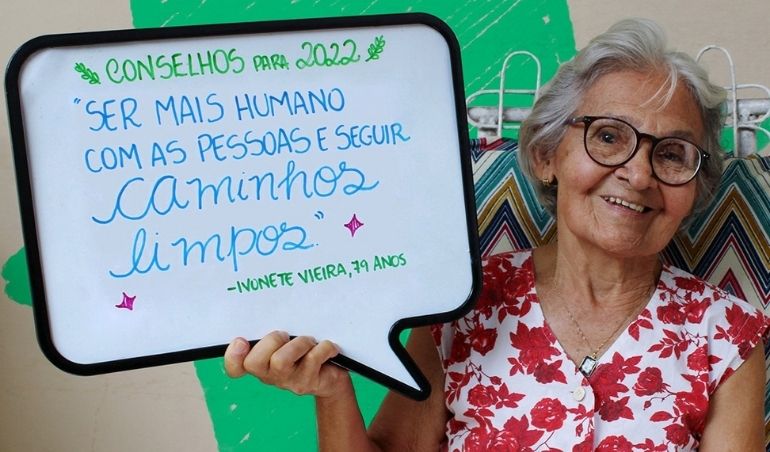 CONSELHOS PARA 2022
"SER MAIS HUMANO
COM AS PESSOAS E SEGUIR
caminhos
limpos."
-IVONETE VIEIRA, 79 ANOS